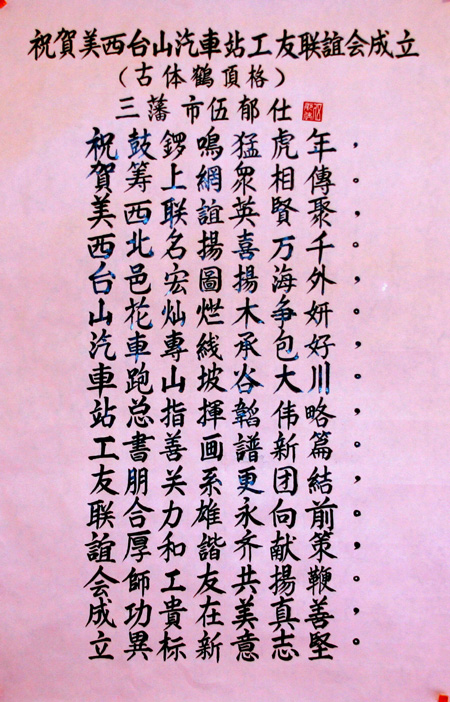 祝賀美西台山汽車站工友联誼会成立
（古体鶴頂格）
三藩市伍郁仕
祝鼓锣鳴猛虎年，
賀籌上網衆相傳。
美西联誼英賢聚，
西北名揚喜万千。
台邑宏圖揚海外，
山花灿烂木争妍。
汽車專线承包好，
車跑山坡谷大川。
站总指揮韜伟略，
工書善画譜新篇。
友朋关系更团結，
联合力雄永向前。
誼厚和諧齐献策，
会師工友共揚鞭。
成功貴在美真善，
立異标新意志堅。